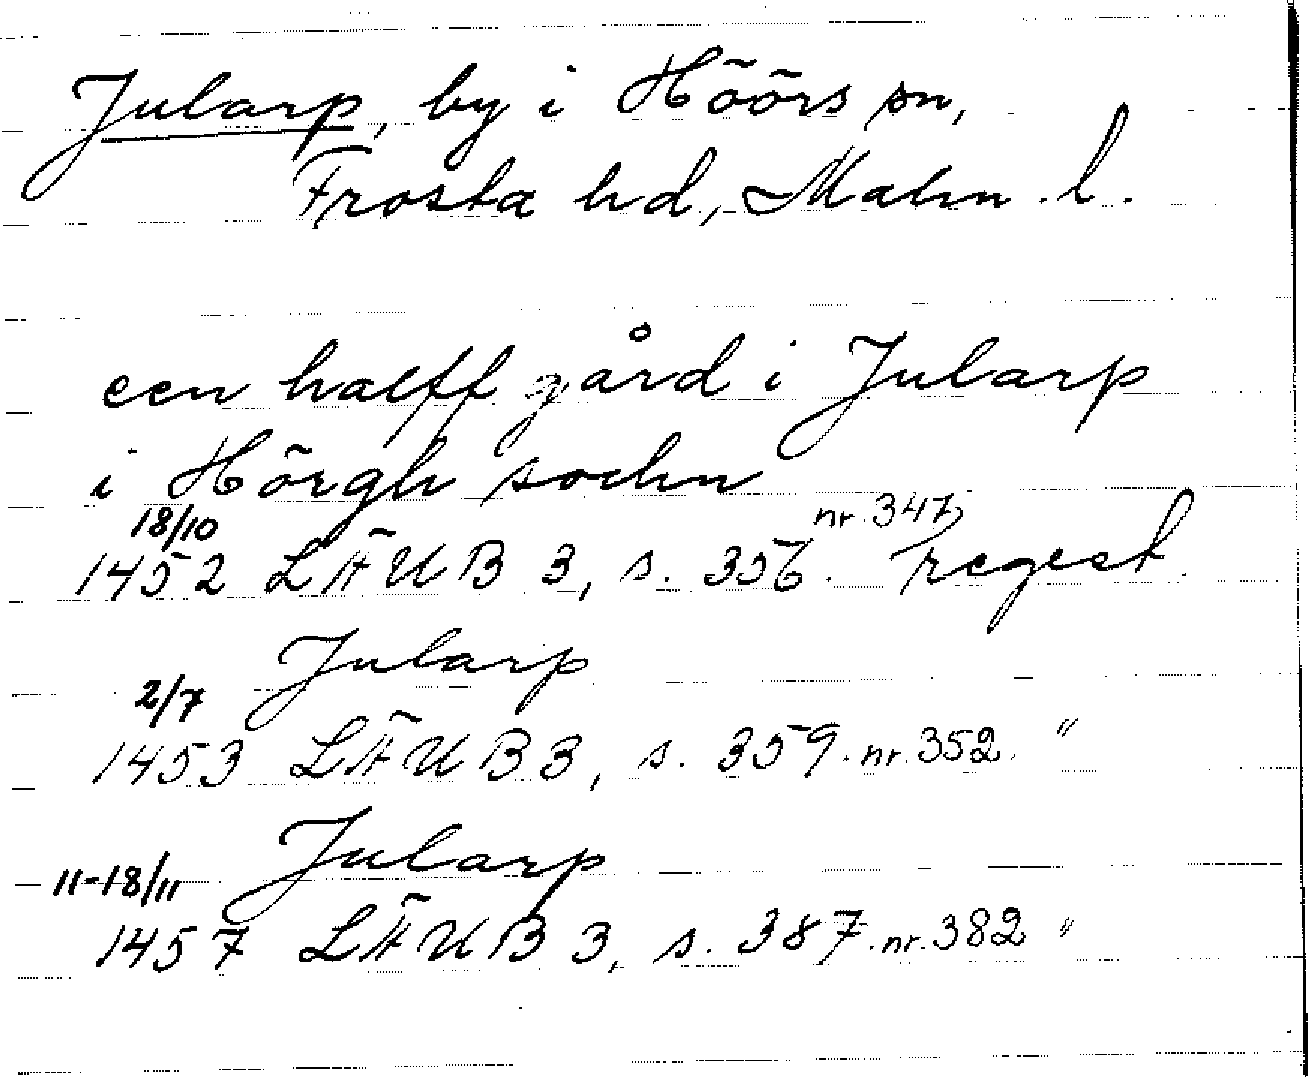 Jularp, by i Höörs sn,
Frosta hd, Malm. l.
een halff gård i Jularp
i Hörgh sochn
18/10 nr. 347
1452 LÄUB 3, s. 356. regest
Jularp
2/7
1453 LÄUB 3, s. 359. nr. 352. "
Jularp
11-18/11
1457 LÄUB 3, s. 387. nr. 382 "